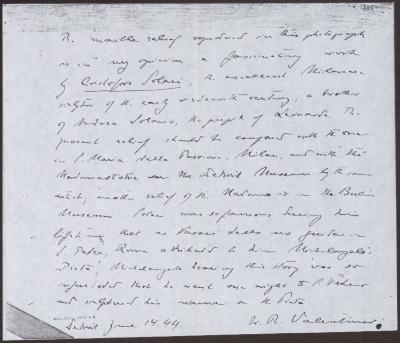 The marble relief reproduced on this photograph
is in my opinion a fascinating work
by Cristoforo Solari, the excellent Milanese
sculptor of the early sixteenth century, a brother
of Andrea Solario, the pupil of Leonardo. The
present relief should be compared with the one
in S. Maria della Passione, Milan, and with the
Madonna statue in the Detroit Museum by the same
artist; another relief of the Madonna is in the Berlin
Museum. Solari was so famous during his
lifetime that as Vasari tells us guides in
S. Peter, Rome attributed to him Michelangelo's
Pietà; Michelangelo hearing this story was so
infuriated that he went one night to S. Peter
and inscribed his name on the Pietà.
Detroit June 14. 44. W. R. Valentiner